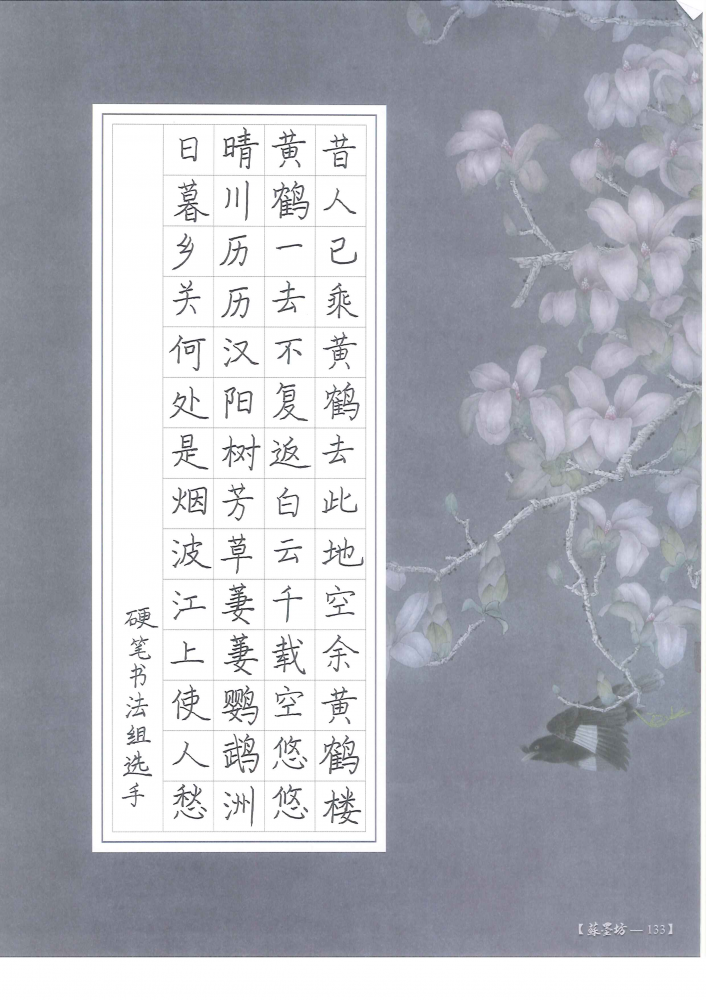 昔人已乘黄鹤去此地空余黄鹤楼
黄鹤一去不复返白云千载空悠悠
晴川历历汉阳树芳草萋萋鹦鹉洲
日暮乡关何处是烟波江上使人愁
硬笔书法组选手
【蘇墨坊—133】